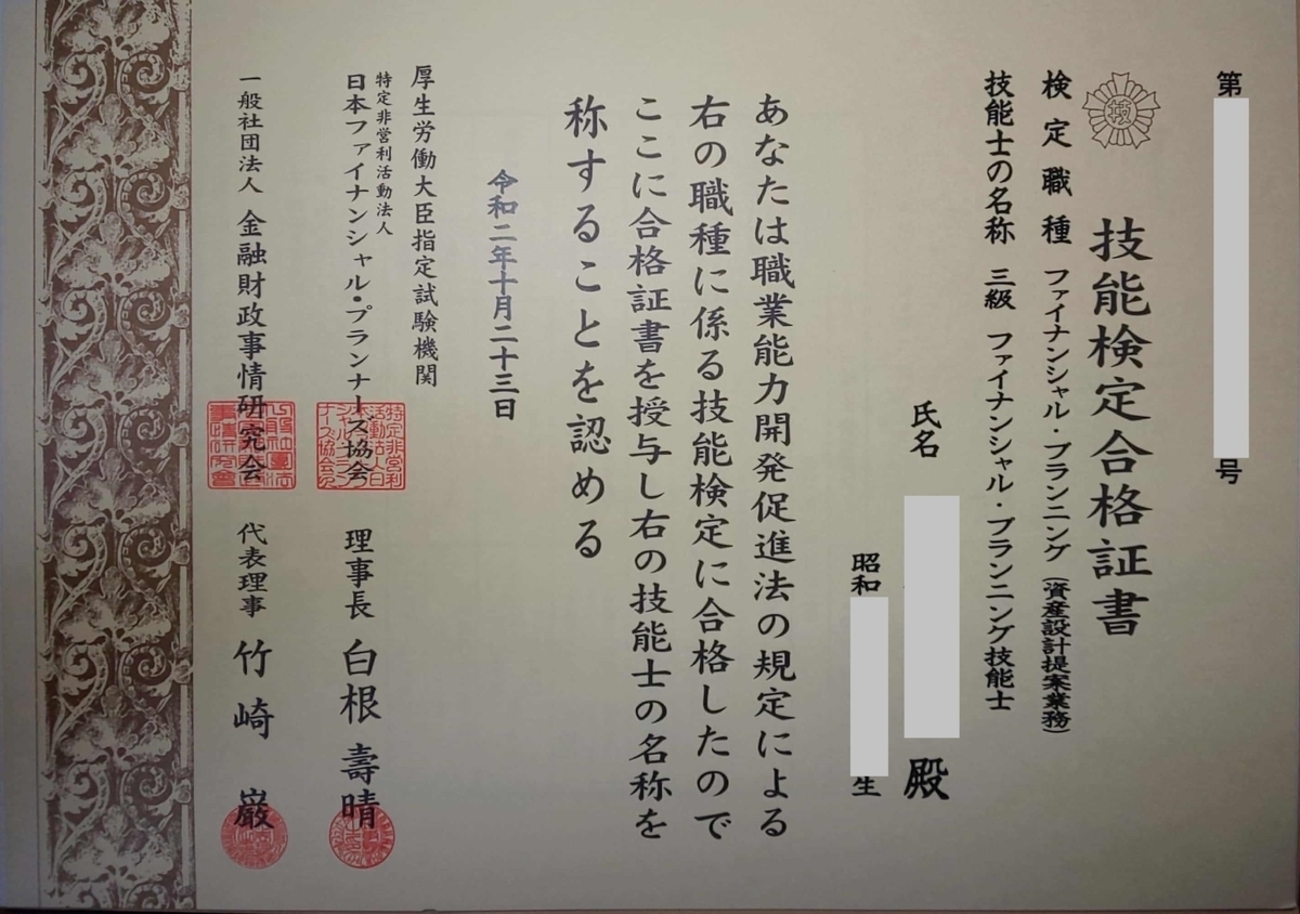 第
号
技能検定合格証書
技
検定職種 ファイナンシャル・プランニング(資産設計提案業務)
技能士の名称 三級 ファイナンシャル・プランニング技能士
氏名
殿
昭和
生
あなたは職業能力開発促進法の規定による
右の職種に係る技能検定に合格したので
ここに合格証書を授与し右の技能士の名称を
称することを認める
令和二年十月二十三日
厚生労働大臣指定試験機関
特定非営利活動法人
日本ファイナンシャル・プランナーズ協会 理事長 白根壽晴
一般社団法人 金融財政事情研究会 代表理事 竹崎巌